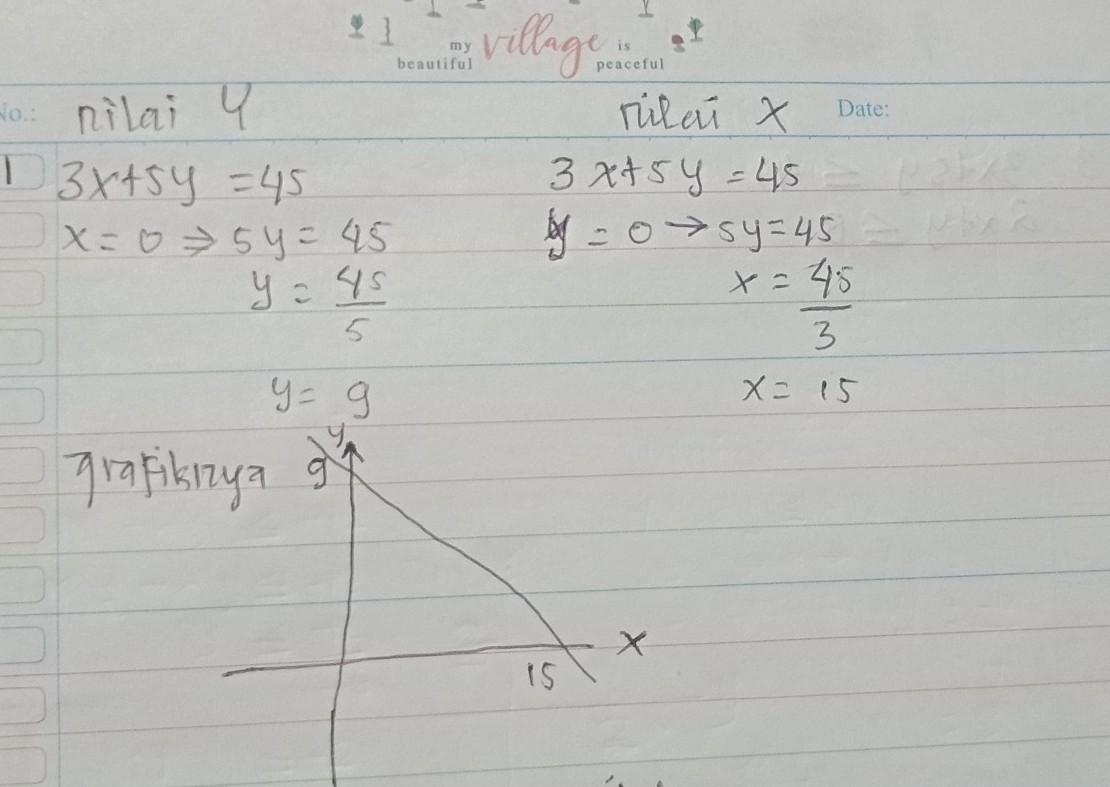 my village is
beautiful peaceful
No.: nilai y nilai x Date:
1 3x+5y = 45 3x+5y = 45
x = 0 ⇒ 5y = 45 y = 0 → 5y = 45
y = 45/5 x = 45/3
y = 9 x = 15
y
grafiknya 9
x
15